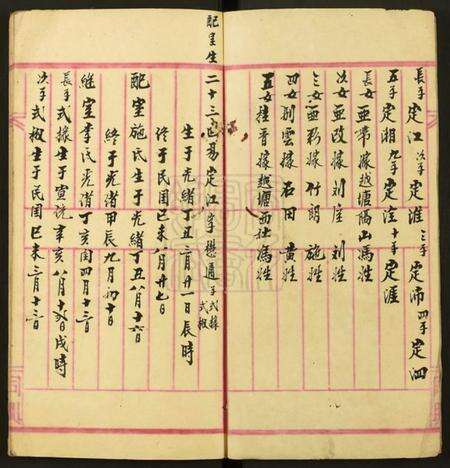 長子定江 次子定淮 三子定沛 四子定泗
五子定湘 九子定洼 十子定涯
長女亜帯嫁越塘隔山馮姓
次女亜改嫁刘崖刘姓
三女亜彩嫁竹朗施姓
四女刘雲嫁石田黄姓
五女 晋嫁越塘西社馮姓
配室生二十三世易定江 字懋通 子式據 式椒
生于光绪丁丑二月廿一日辰時
终于民国己未八月廿七日
配室施氏生于光緒丁丑八月十六日
终于光緒甲辰九月初十日
継室李氏光緒丁亥閏四月十三日
長子式據生于宣統辛亥八月十六日戌時
次子式椒生于民国己未三月十三日